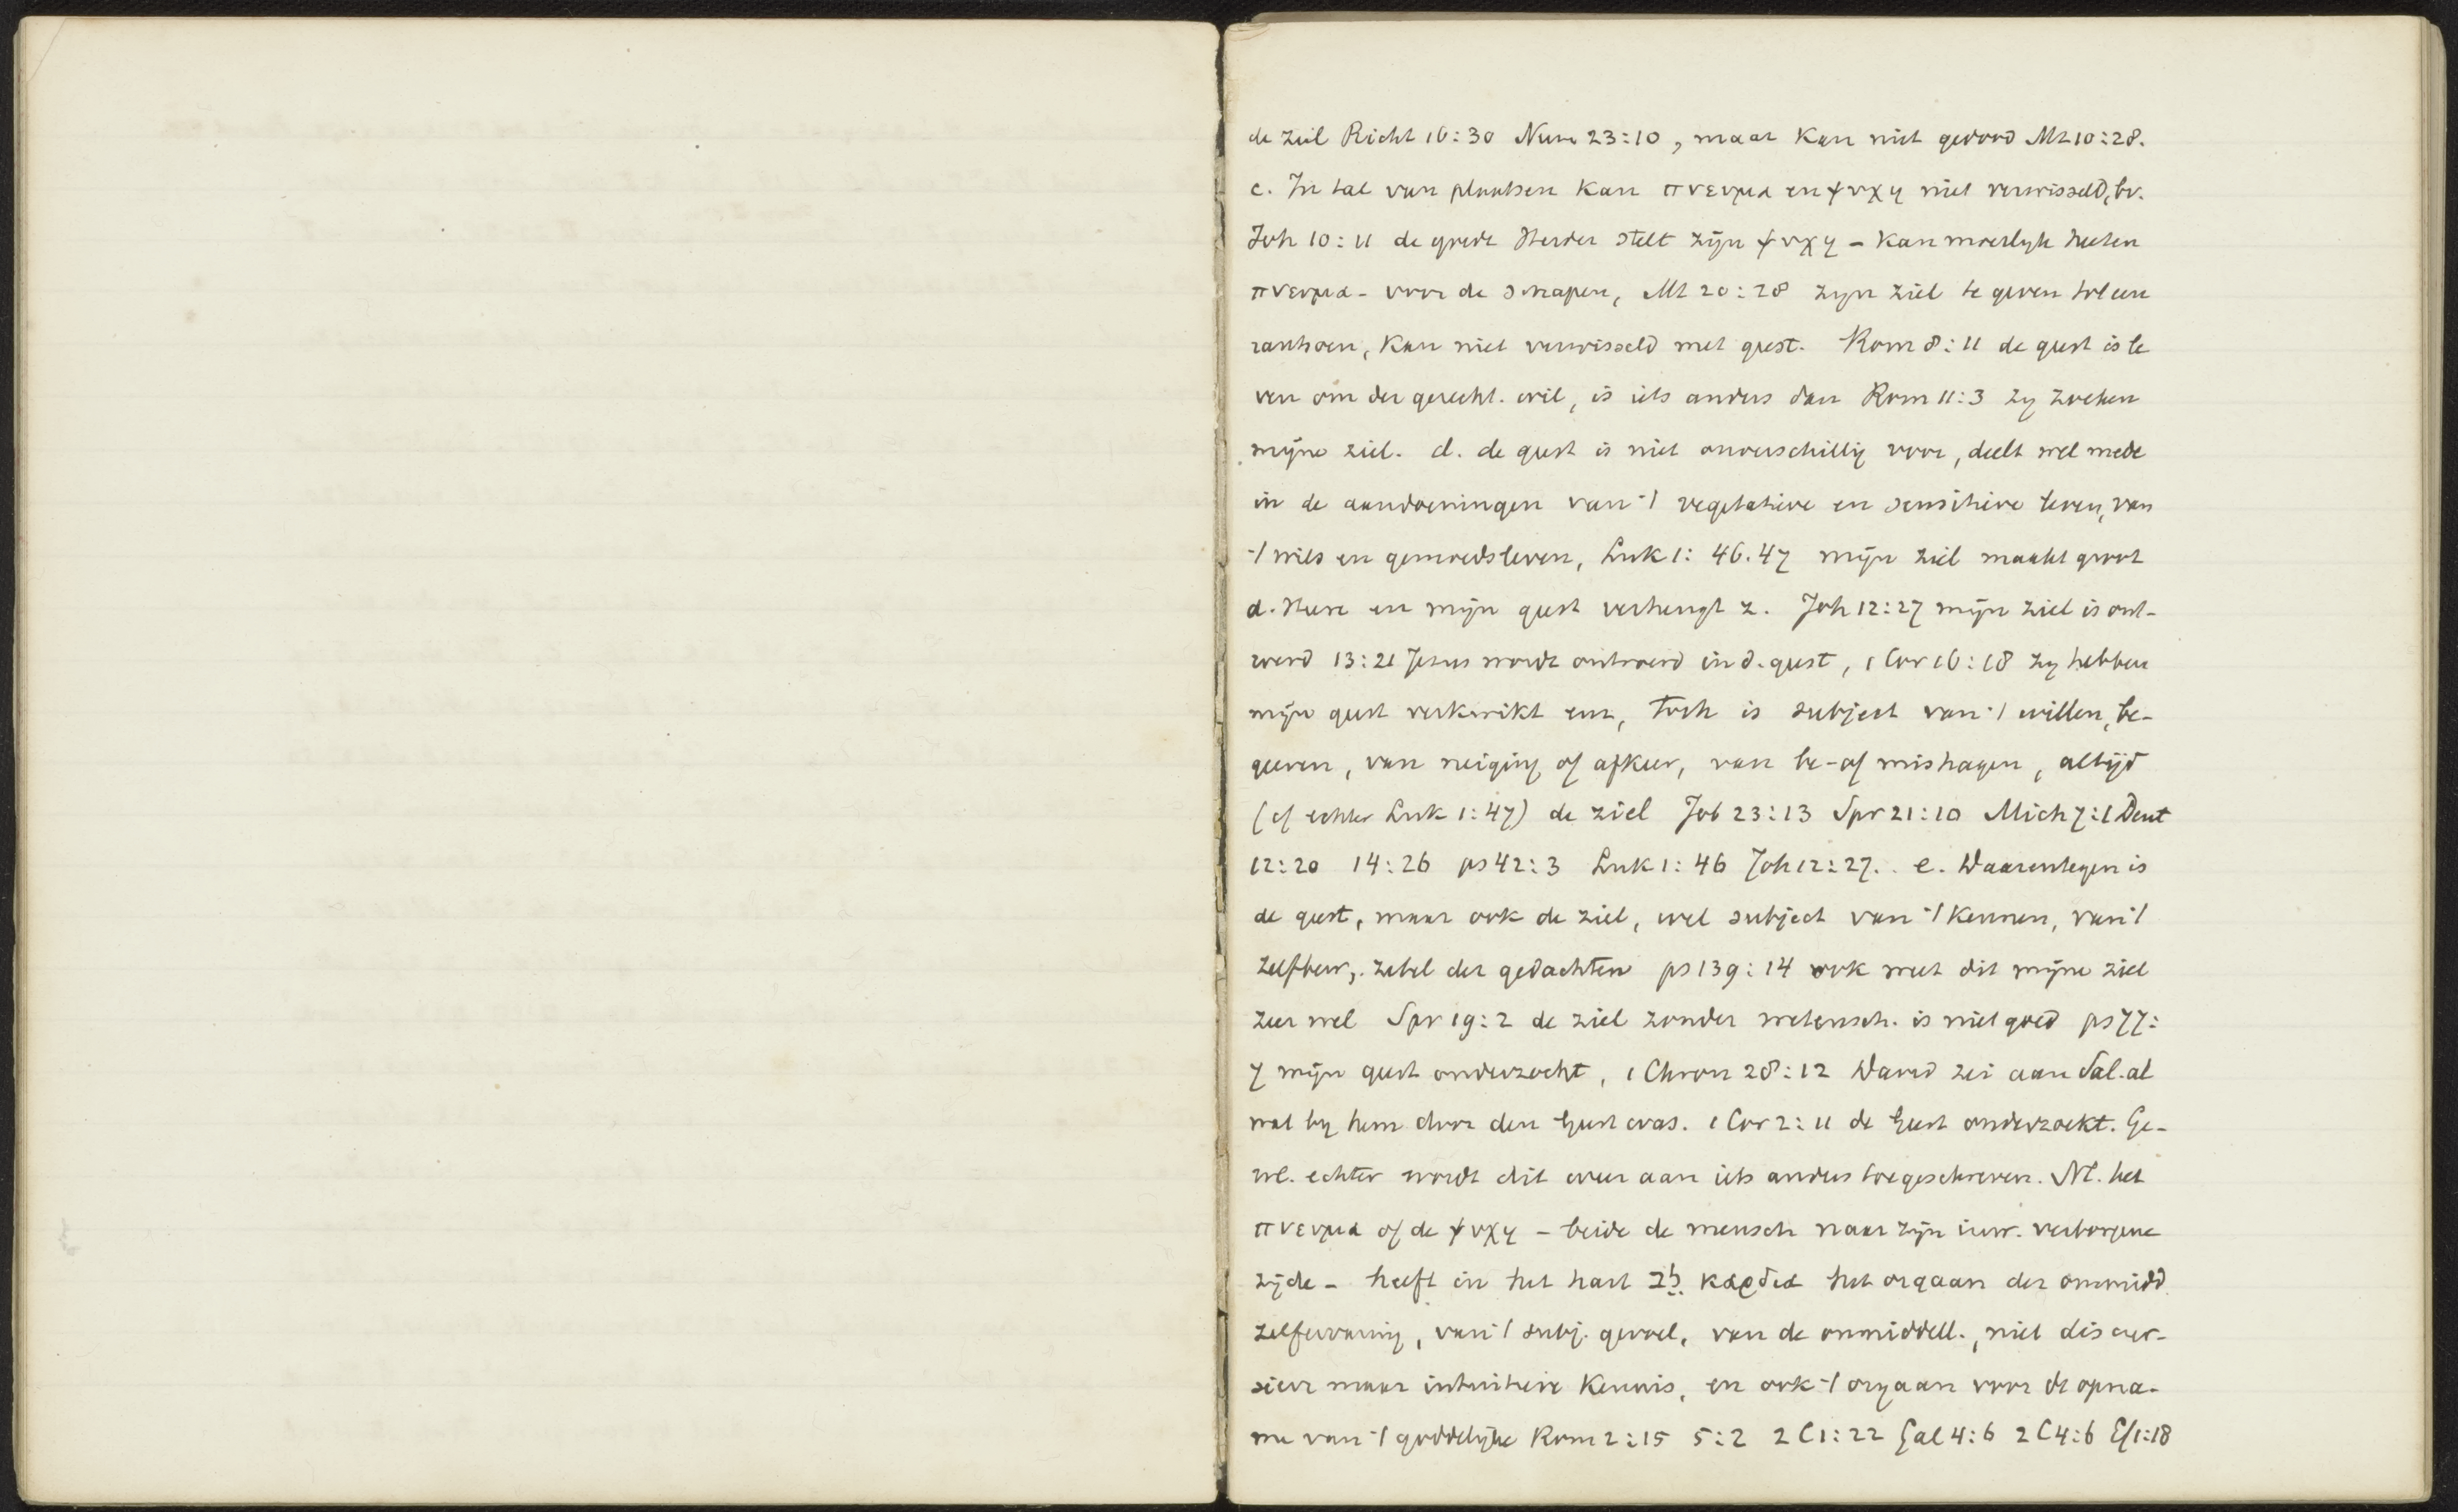 de ziel Richt 16:30 Num 23:10, maar kan niet gedood Mt 10:28.
c. In tal van plaatsen kan πνευμα en ψυχη niet verwisseld, bv.
Joh 10:11 de goede Herder stelt zijn ψυχη - kan moeilyk heeten
πνευμα - voor de schapen, Mt 20:28 zyn ziel te geven tot een
rantsoen, kan niet verwisseld met geest. Rom 8:11 de geest is le
ven om der gerecht. wil, is iets anders dan Rom 11:3 zy zoeken
mijne ziel. d. de geest is niet onverschillig voor, deelt wel mede
in de aandoeningen van 't vegetatieve en sensitieve leven, van
't wils en gemoedsleven, Luk 1:46.47 mijn ziel maakt groot
d. Heere en mijn geest verheugt z. Joh 12:27 mijn ziel is ont-
roerd 13:21 Jezus wordt ontroerd in d. geest, 1 Cor 16:18 zy hebben
mijn geest verkwikt enz, toch is subject van 't willen, be-
geeren, van neiging of afkeer, van be- of mishagen, altijd
(cf echter Luk 1:47) de ziel Job 23:13 Spr 21:10 Mich 7:1 Deut
12:20 14:26 ps 42:3 Luk 1:46 Joh 12:27. e. Daarentegen is
de geest, maar ook de ziel, wel subject van 't kennen, van 't
zelfbew, zetel der gedachten ps 139:14 ook weet dit mijne ziel
zeer wel Spr 19:2 de ziel zonder wetensch. is niet goed ps 77:
7 mijn geest onderzocht, 1 Chron 28:12 David zei aan Sal. al
wat by hem door den Geest was. 1 Cor 2:11 de Geest onderzoekt. Ge-
wl. echter wordt dit weer aan iets anders toegeschreven. Nl. het
πνευμα of de ψυχη - beide de mensch naar zijn inw. verborgene
zijde - heeft in het hart לב καρδια het orgaan der onmidd.
zelfervaring, van 't subj. gevoel, van de onmiddell., niet discur-
sieve maar intuitieve kennis, en ook 't orgaan voor de opna-
me van 't goddelijke Rom 2:15 5:2 2 C 1:22 Gal 4:6 2 C 4:6 Ef 1:18